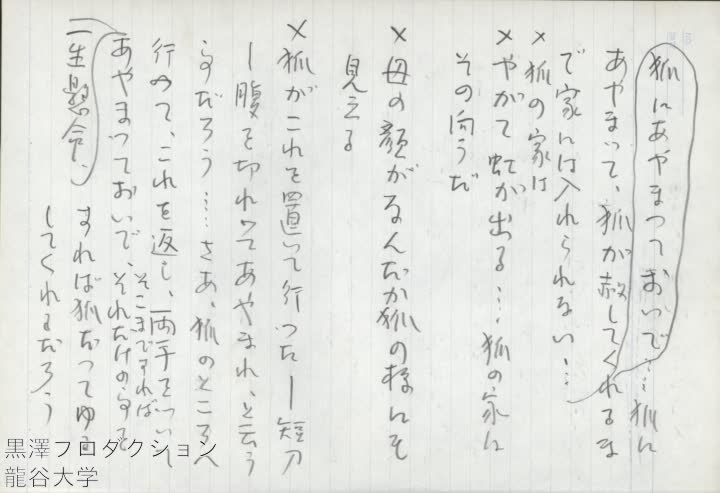 狐にあやまつておいで…狐に
あやまつて、狐が赦してくれるま
で家には入れられない…
×狐の家は
×やがて虹が出る…狐の家は
その向うだ
×母の顔がなんだか狐の様にも
見える
×狐がこれを置いて行つたー短刀
ー腹を切れつてあやまれ、と云う
事だろう……さあ、狐のところへ
行つて、これを返し、両手をついて
あやまつておいで、それだけの事を
そこまですれば
一生懸命、
すれば狐だつてゆる
してくれるだろう
黒澤プロダクション
龍谷大学